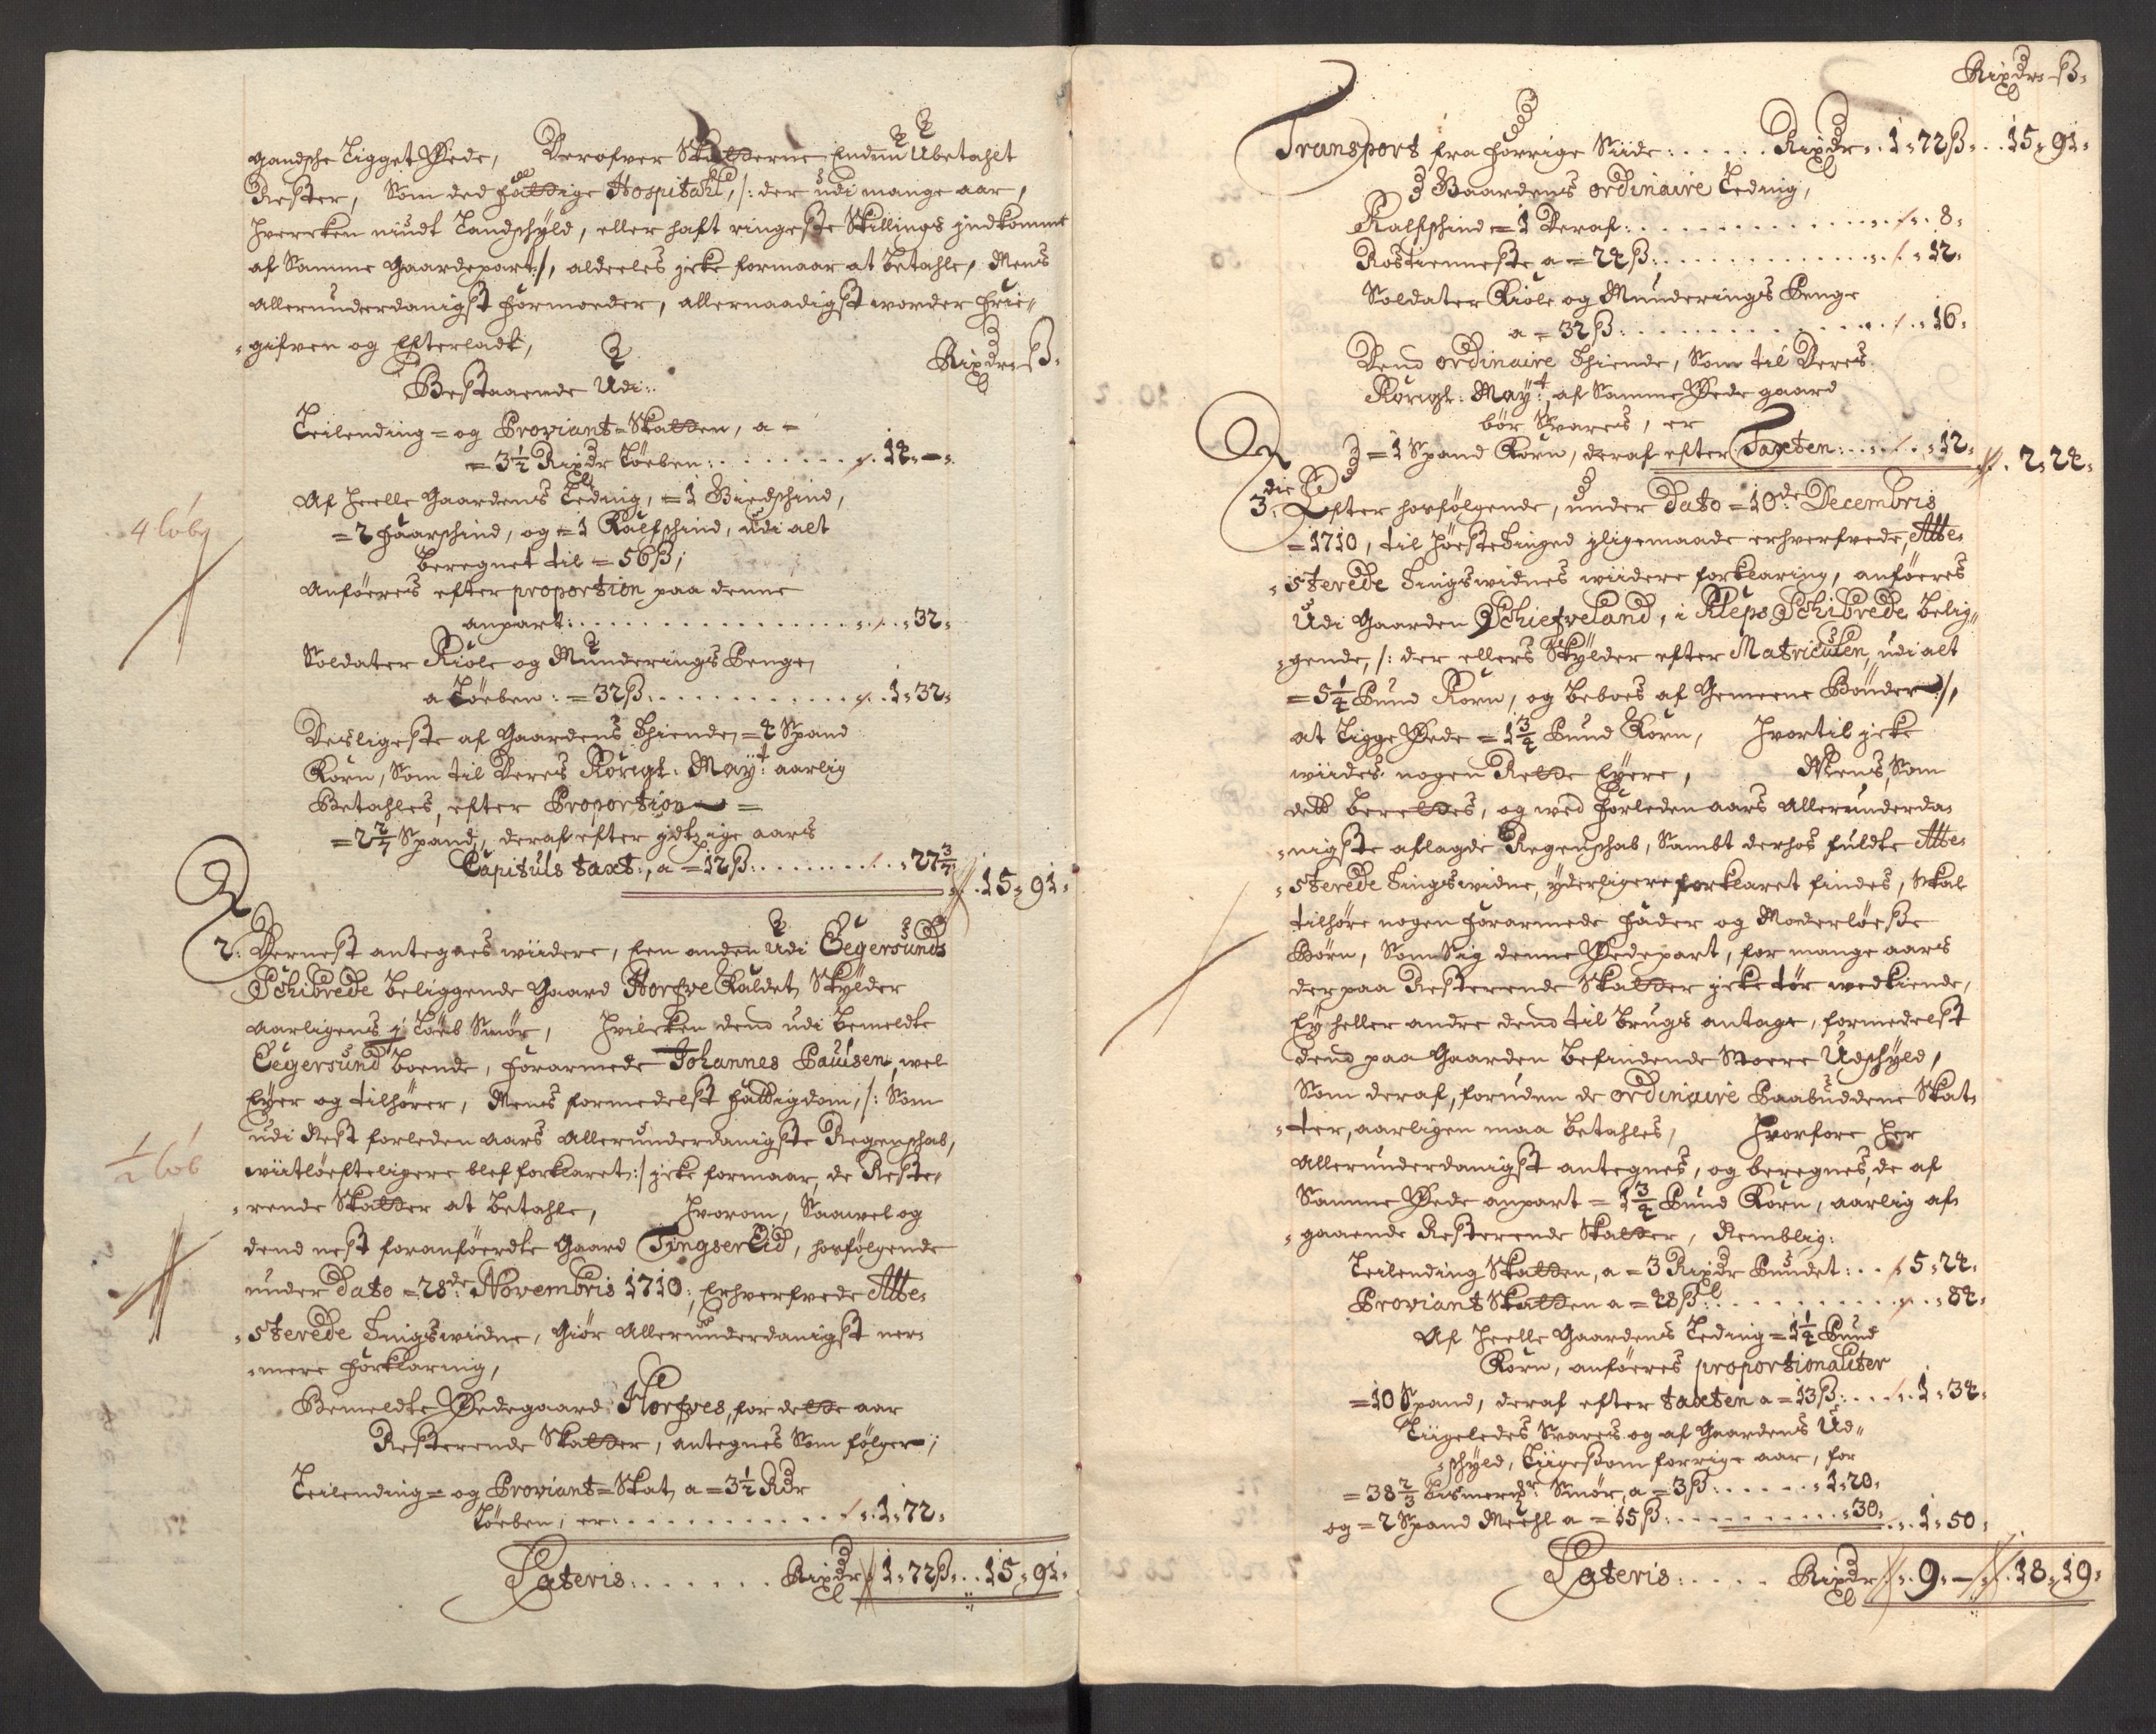 gandsche Ligget Øede, Derofver Skatterne Endnu Ubetahlt
Rester, Som ded fattige Hospitahl, /: der udi mange aar,
hvercken niudt Landschyld, eller haft ringeste Skillings indkomme
af Samme Gaardepart :/, aldeeles icke formaar at betahle, Mens
allerunderdanigst formoeder, allernaadigst worder frie„
„gifven og Efterladt,
Rixdr ß
Bestaaende Udi:
Leilending= og Proviant=Skatten, a =
= 3½ Rixdr Løeben: . . . . . . . . 12 „ — „
Af heelle Gaardens Leding, = 1 Giedschind,
4 løby
= 2 faarschind, og = 1 Kalfschind, udi alt
beregnet til = 56 ß;
Anføeres efter proportion paa denne
anpart: . . . . . . . . . . . . . . „ 32 „
Soldater Kiole og Munderings Penge,
a Løeben: = 32 ß: . . . . . . . . . . 1 „ 32 „
Desligeste af Gaardens Thiende, = 4 Spand
Korn, Som til Deres Kongl: May:t aarlig
Betahles, efter Proportion =
= 2 2/7 Spand, deraf efter aars
Capituls taxt:, a = 12 ß: . . . . . . . . „ 27 3/7
„ 15 „ 91 „
2: Dernest antegnes wiidere, Een anden Udi Eegersunds
Schibrede beliggende Gaard Horfve Kaldet, Skylder
aarligens ½ Løeb Smør, hvilcken dend udi bemeldte
Eegersund boende, forarmede Johannes Paulsen, wel
Eyer og tilhører, Mens formedelst fattigdom, /: Som
udi Nest forleden aars allerunderdanigste Regenschab,
½ løb
wiitløefteligere blef forklaret :/ icke formaar, de Reste„
„rende Skatter at betahle, hvorom, Saavel og
dend nest foranføerdte Gaard Tingserlid, hosfølgende
under dato = 28de: Novembris 1710: Erhverfvede Atte„
„sterede Tingswidne, Giør allerunderdanigst ner„
„mere forklaring,
Bemeldte Ødegaard Horfves, for dette aar
Resterende Skatter, antegnes Som følger;
Leilending= og Proviant=Skat, a = 3½ Rdr
Løeben, er: . . . . . . . . . . . . 1 „ 72 „
Lateris: . . . . . . Rixdr 1 „ 72 ß „ . . 15 „ 91 „
Rixdr ß
Transport fra forrige Siide: . . . . . Rixdr . . 1 „ 72 ß „ . . 15 „ 91 „
Gaardens ordinaire Leding,
Kalfschind = 1 Deraf: . . . . . . . . . . . . 8 „
Rostienneste a = 24 ß: . . . . . . . . . . . . 12 „
Soldater Kiole og Munderings Penge
a = 32 ß: . . . . . . . . . . . . . 16 „
Dend ordinaire Thiende, Som til Deres
Kongl: May:t, af Samme Øede gaard
bør Svares, er
= 1 Spand Korn, deraf efter Taxten: . . . . „ 12 „
„ 2 „ 24 „
3die: Efter hosfølgende, under dato = 10de: Decembris
= 1710, til høeste Tinged iligemaade erhverfvede, Atte„
„sterede Tingswidnes wiidere forklaring, anføeres
Udi Gaarden Schiefveland, i Kleps Schibrede belig„
„gende, /: der ellers Skylder efter Matriculen, udi alt
= 5¼ Pund Korn, og beboes af Gemeene Bønder :/,
at Ligge Øede = 1¾ Pund Korn, hvortil icke
wiides nogen Rette Eyere, Mens, Som
dett berettes, og wed forleden aars allerunderda„
„nigste aflagde Regenschab, Sambt derhos fuldte Atte„
„sterede Tingswidne, yderligere forklaret findes, Skal
tilhøre nogen forarmede fader og Moederløesse
Børn, Som Sig denne Øedepart, for mange aars
derpaa Resterende Skatter icke tør wedkiende,
Ey heller andre dend til brugs antage, formedelst
dend paa Gaarden befindende Stoere Udschyld,
Som deraf, foruden de ordinaire Paabuddene Skat„
„ter, aarligen maa betahles, hvorfore her
allerunderdanigst antegnes, og beregnes, de af
Samme Øede anpart = 1¾ Pund Korn, aarlig af„
„gaaende Resterende Skatter, Nemblig:
Leilending Skatten, a = 3 Rixdr Pundet: . . 5 „ 24 „
Proviant Skatten a = 48 ß: . . . . . . . . . . „ 84 „
Af heelle Gaardens Leding = 1¼ Pund
Korn, anføeres proportionaliter
= 10 Spand, deraf efter taxten a = 13 ß: . . . . 1 „ 34 „
Liigeledes Svares og af Gaardens Ud„
„schyld, Liigesom forrige aar, for
= 38 2/3 bismerpd: Smør, a = 3 ß: . . . . . 1 „ 20 „
og = 2 Spand Meehl a = 15 ß: . . . . . . . . „ 30 „ . . 1 „ 50 „
Lateris: . . . . Rixdr . . 9 „ — „ . 18 „ 19 „